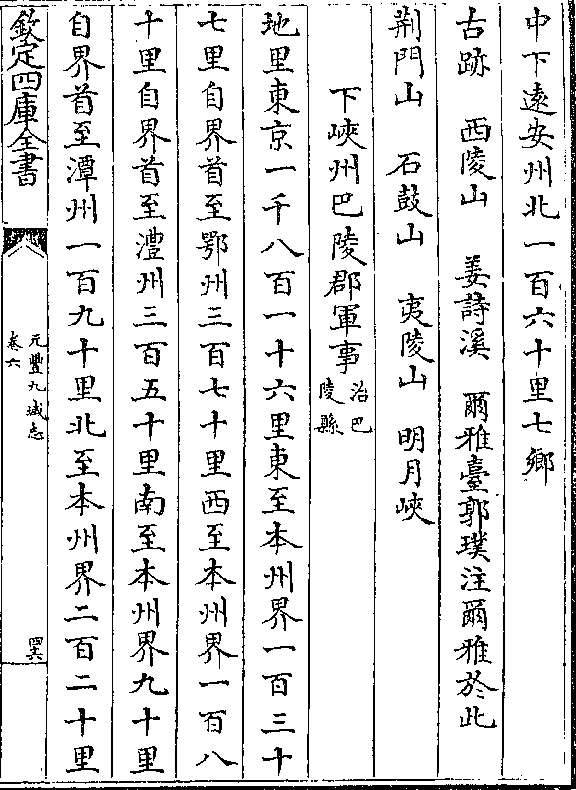 中下逺安州北一百六十里七鄉
古跡　西陵山　姜詩溪　爾雅臺郭璞注爾雅於此
荆門山　石鼓山　夷陵山　明月峽
下峽州巴陵郡軍事治巴陵縣
地里東京一千八百一十六里東至本州界一百三十
七里自界首至鄂州三百七十里西至本州界一百八
十里自界首至澧州三百五十里南至本州界九十里
自界首至潭州一百九十里北至本州界二百二十里
欽定四庫全書
元豐九域志
卷六
四六